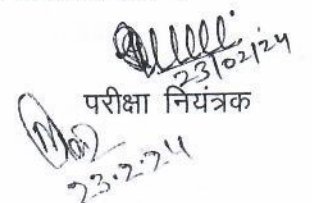 23/02/24
परीक्षा नियंत्रक
23.2.24